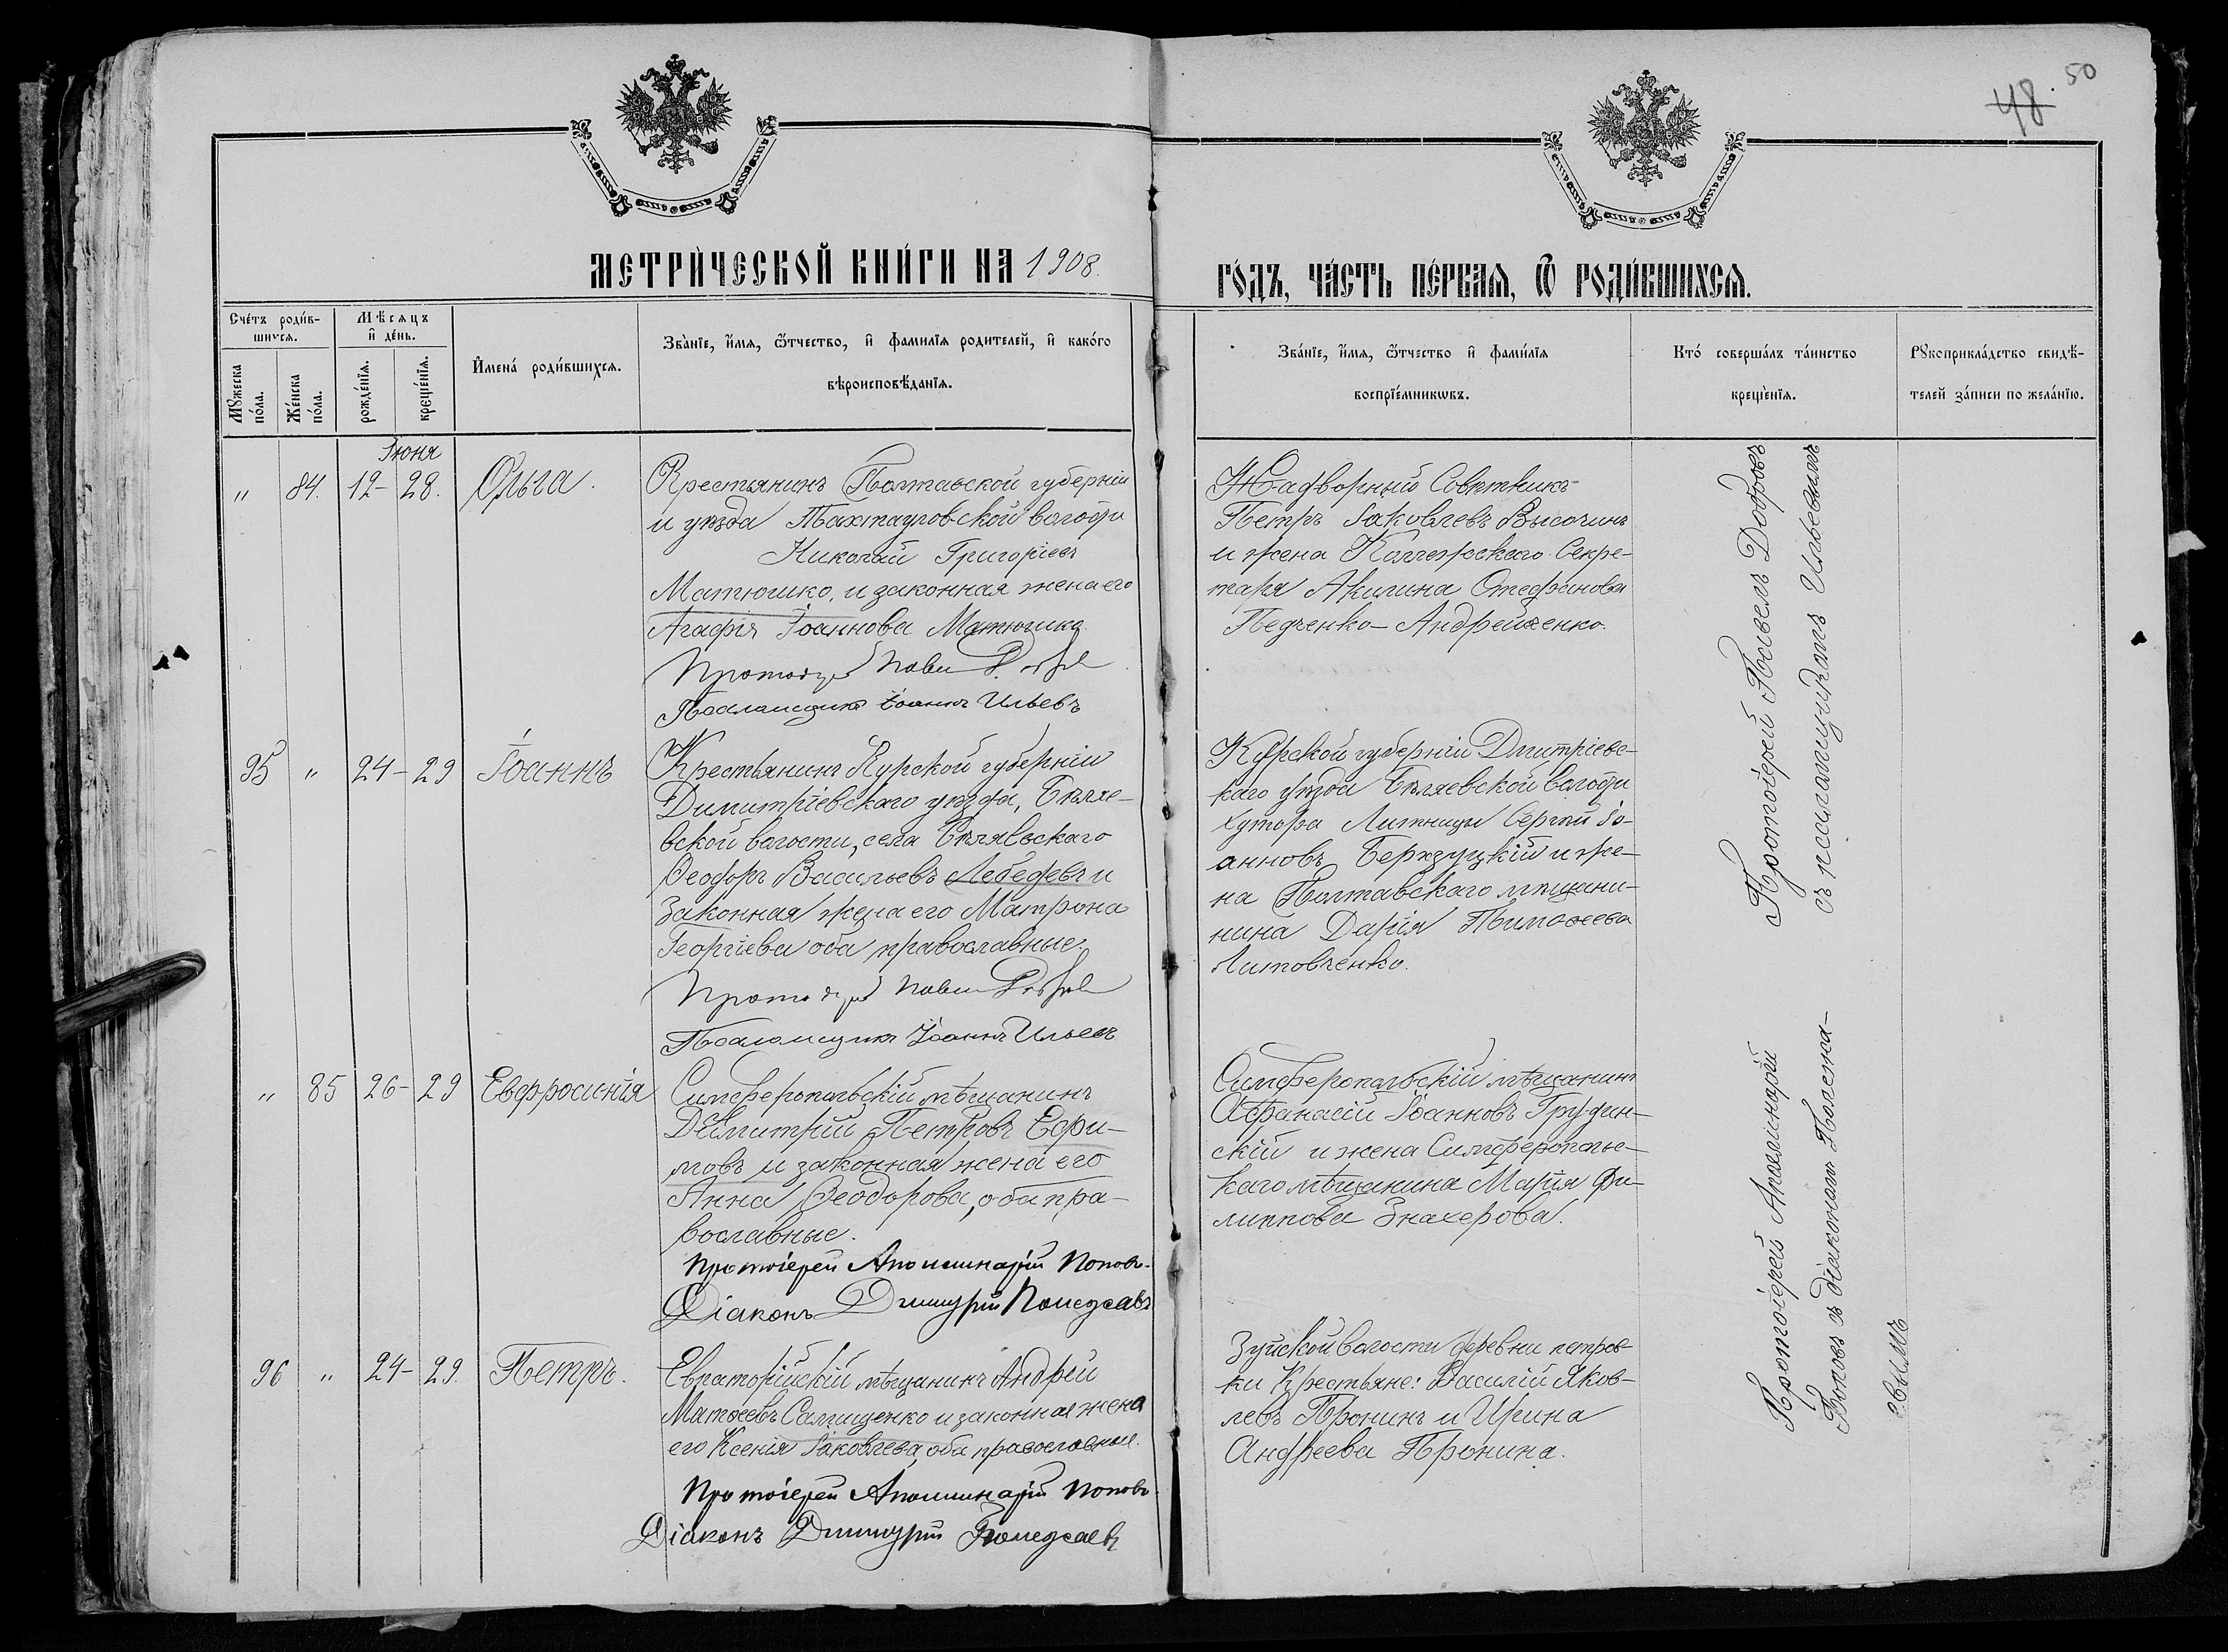 48. 50
МЕТРИ́ЧЕСКОЙ КНИ́ГИ НА 1908.
ГО́ДЪ, ЧА́СТЬ ПЕ́РВАЯ, Ѿ РОДИ́ВШИХСЯ.
Сче́тъ роди́в-
шихся.
Мѣсяцъ
и҆ де́нь.
Му́жеска
по́ла.
Же́нска
по́ла.
рожде́нїя.
креще́нїя.
И҆мена́ роди́вшихся.
Зва́нїе, и҆́мя, ѻ҆́тчество, и҆ фами́лїя роди́телей, и҆ како́го
вѣроисповѣ́данїя.
Зва́нїе, и҆́мя, ѻ҆́тчество и҆ фами́лїя
воспрїе́мникωвъ.
Кто́ соверша́лъ та́инство
креще́нїя.
Рукоприкла́дство свидѣ́-
телей за́писи по жела́нїю.
Іюня
„ 84. 12- 28. Ольга.
Крестьянинъ Полтавской губерніи
и уѣзда Тахтауловской волости
Николай Григоріевъ
Матюшко, и законная жена его
Агафія Іоаннова Матюшко.
Протоіерей Павелъ Добровъ
Псаломщикъ Іоаннъ Ильевъ
Надворный Совѣтникъ
Петръ Іаковлевъ Высочинъ
и жена Коллежскаго Секре-
таря Акилина Стефанова
Педченко-Андрейченко.
Протоіерей Павелъ Добровъ
съ псаломщикомъ Ильевымъ
95 „ 24-29 Іоаннъ
Крестьянинъ Курской губерніи
Димитріевскаго уѣзда, Бѣляе-
вской волости, села Бѣляевскаго
Ѳеодоръ Васильевъ Лебедевъ и
законная жена его Матрона
Георгіева оба православные.
Протоіерей Павелъ Добровъ
Псаломщикъ Іоаннъ Ильевъ
Курской губерніи Дмитріевс-
каго уѣзда Бѣляевской волости
хутора Сергій Іо-
анновъ и же-
на Полтавскаго мѣщани-
нина Дарія Тимоѳеева
Литовченко.
„ 85 26-29 Евфросинія
Симферопольскій мѣщанинъ
Димитрій Петровъ Ефи-
мовъ и законная жена его
Анна Ѳеодорова, оба пра-
вославные.
Протоіерей Аполлинарій Поповъ
Діаконъ Димитрій Полежаевъ
Симферопольскій мѣщанинъ
Афанасій Іоанновъ Грудин-
скій и жена Симферопольс-
каго мѣщанина Марія Фи-
липпова Знахерова.
Протоіерей Аполлинарій
Поповъ съ діакономъ Полежа-
евымъ
96 „ 24-29. Петръ.
Евпаторійскій мѣщанинъ Андрей
Матѳеевъ Самищенко и законная жена
его Ксенія Іаковлева, оба православные.
Протоіерей Аполлинарій Поповъ
Діаконъ Димитрій Полежаевъ
Зуйской волости деревни петров-
ки Крестьяне: Василій Яков-
левъ Пронинъ и Ирина
Андреева Пронина.